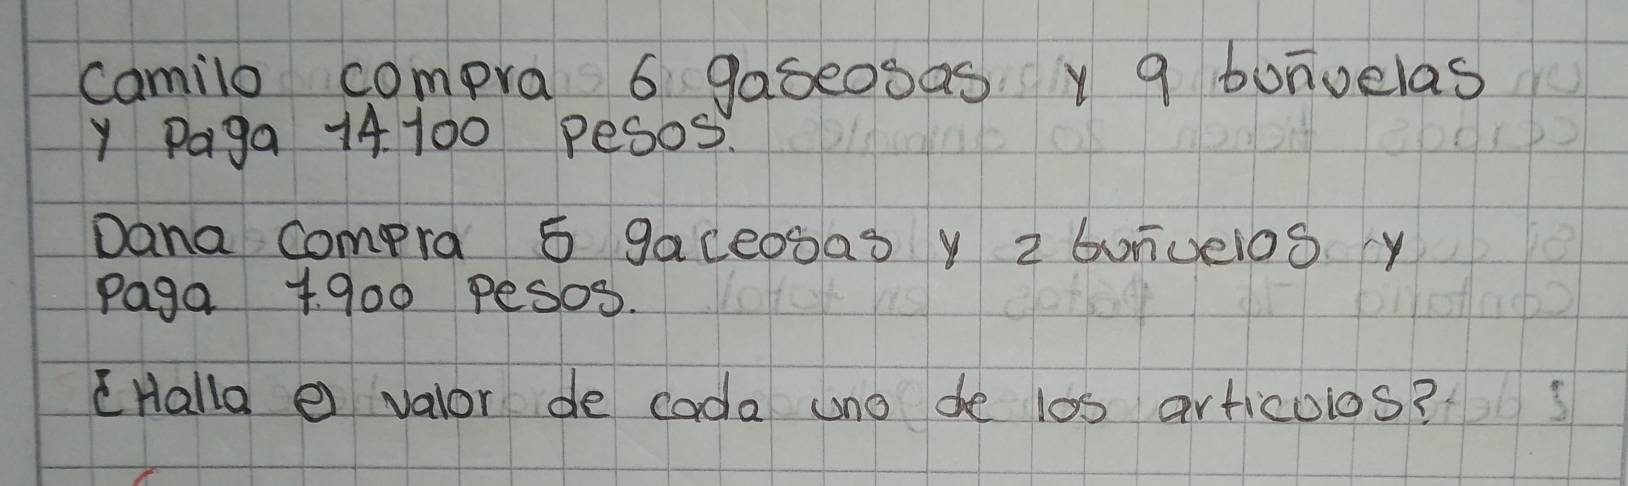 camilo compra 6 gaseosas y 9 boñuelas
y paga 14.100 pesos.
Dana compra 5 gaceosas y 2 boñuelos y
paga 7.900 pesos.
¿Halla e valor de cada uno de los articulos?